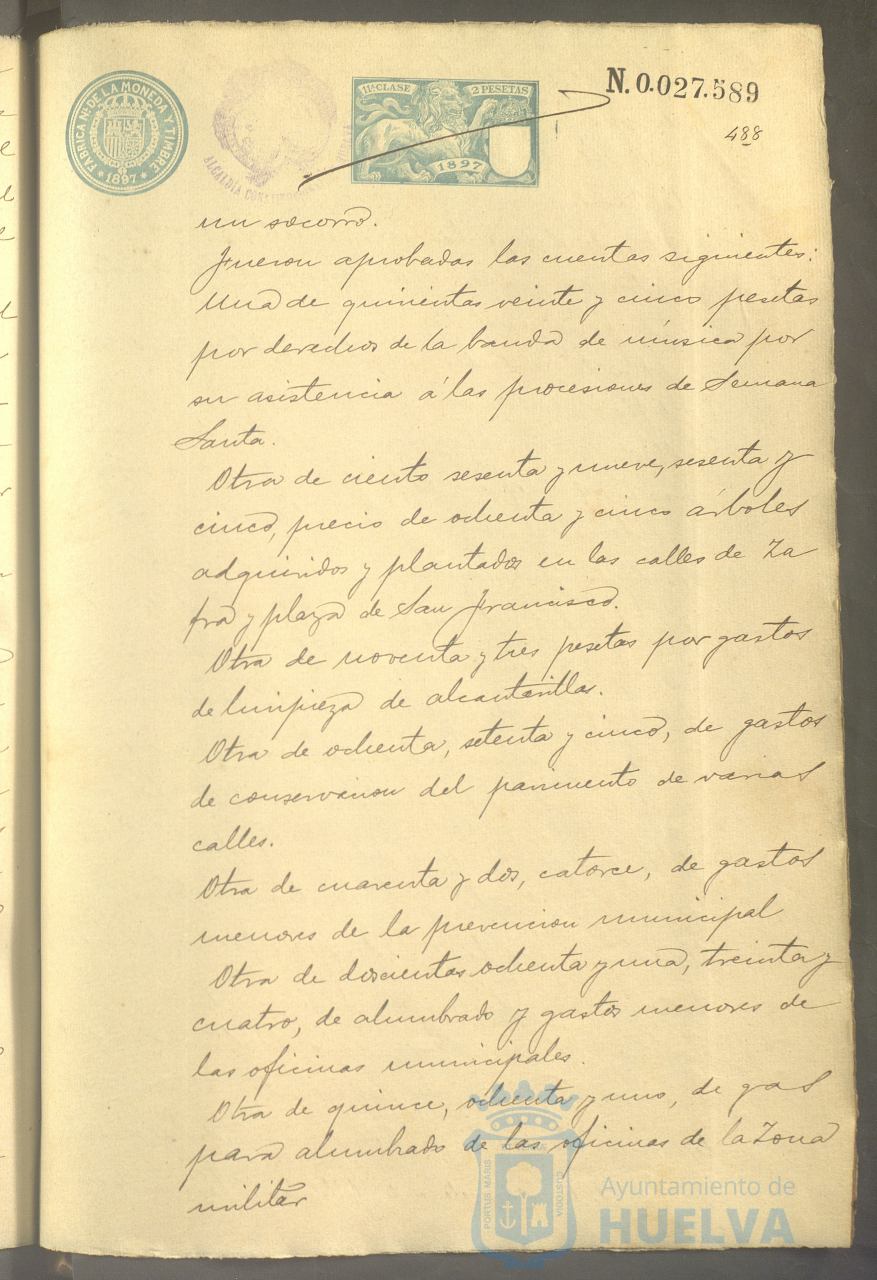 FABRICA Nal. DE LA MONEDA Y TIMBRE
* 1897 *
ALCALDÍA
11ª CLASE 2 PESETAS
1897
N.0.027.589
488
un socorro.
Fueron aprobadas las cuentas siguientes:
Una de quinientas veinte y cinco pesetas
por derechos de la banda de música por
su asistencia á las procesiones de Semana
Santa.
Otra de ciento sesenta y nueve, sesenta y
cinco, precio de ochenta y cinco árboles
adquiridos y plantados en las calles de Za
fra y plaza de San Francisco.
Otra de noventa y tres pesetas por gastos
de limpieza de alcantarillas.
Otra de ochenta, setenta y cinco, de gastos
de conservacion del pavimento de varias
calles.
Otra de cuarenta y dos, catorce, de gastos
menores de la prevencion municipal
Otra de doscientas ochenta y una, treinta y
cuatro, de alumbrado y gastos menores de
las oficinas municipales.
Otra de quince, ochenta y uno, de gas
para alumbrado de las oficinas de la Zona
militar
PORTUS MARIS
CUSTODIA
Ayuntamiento de
HUELVA